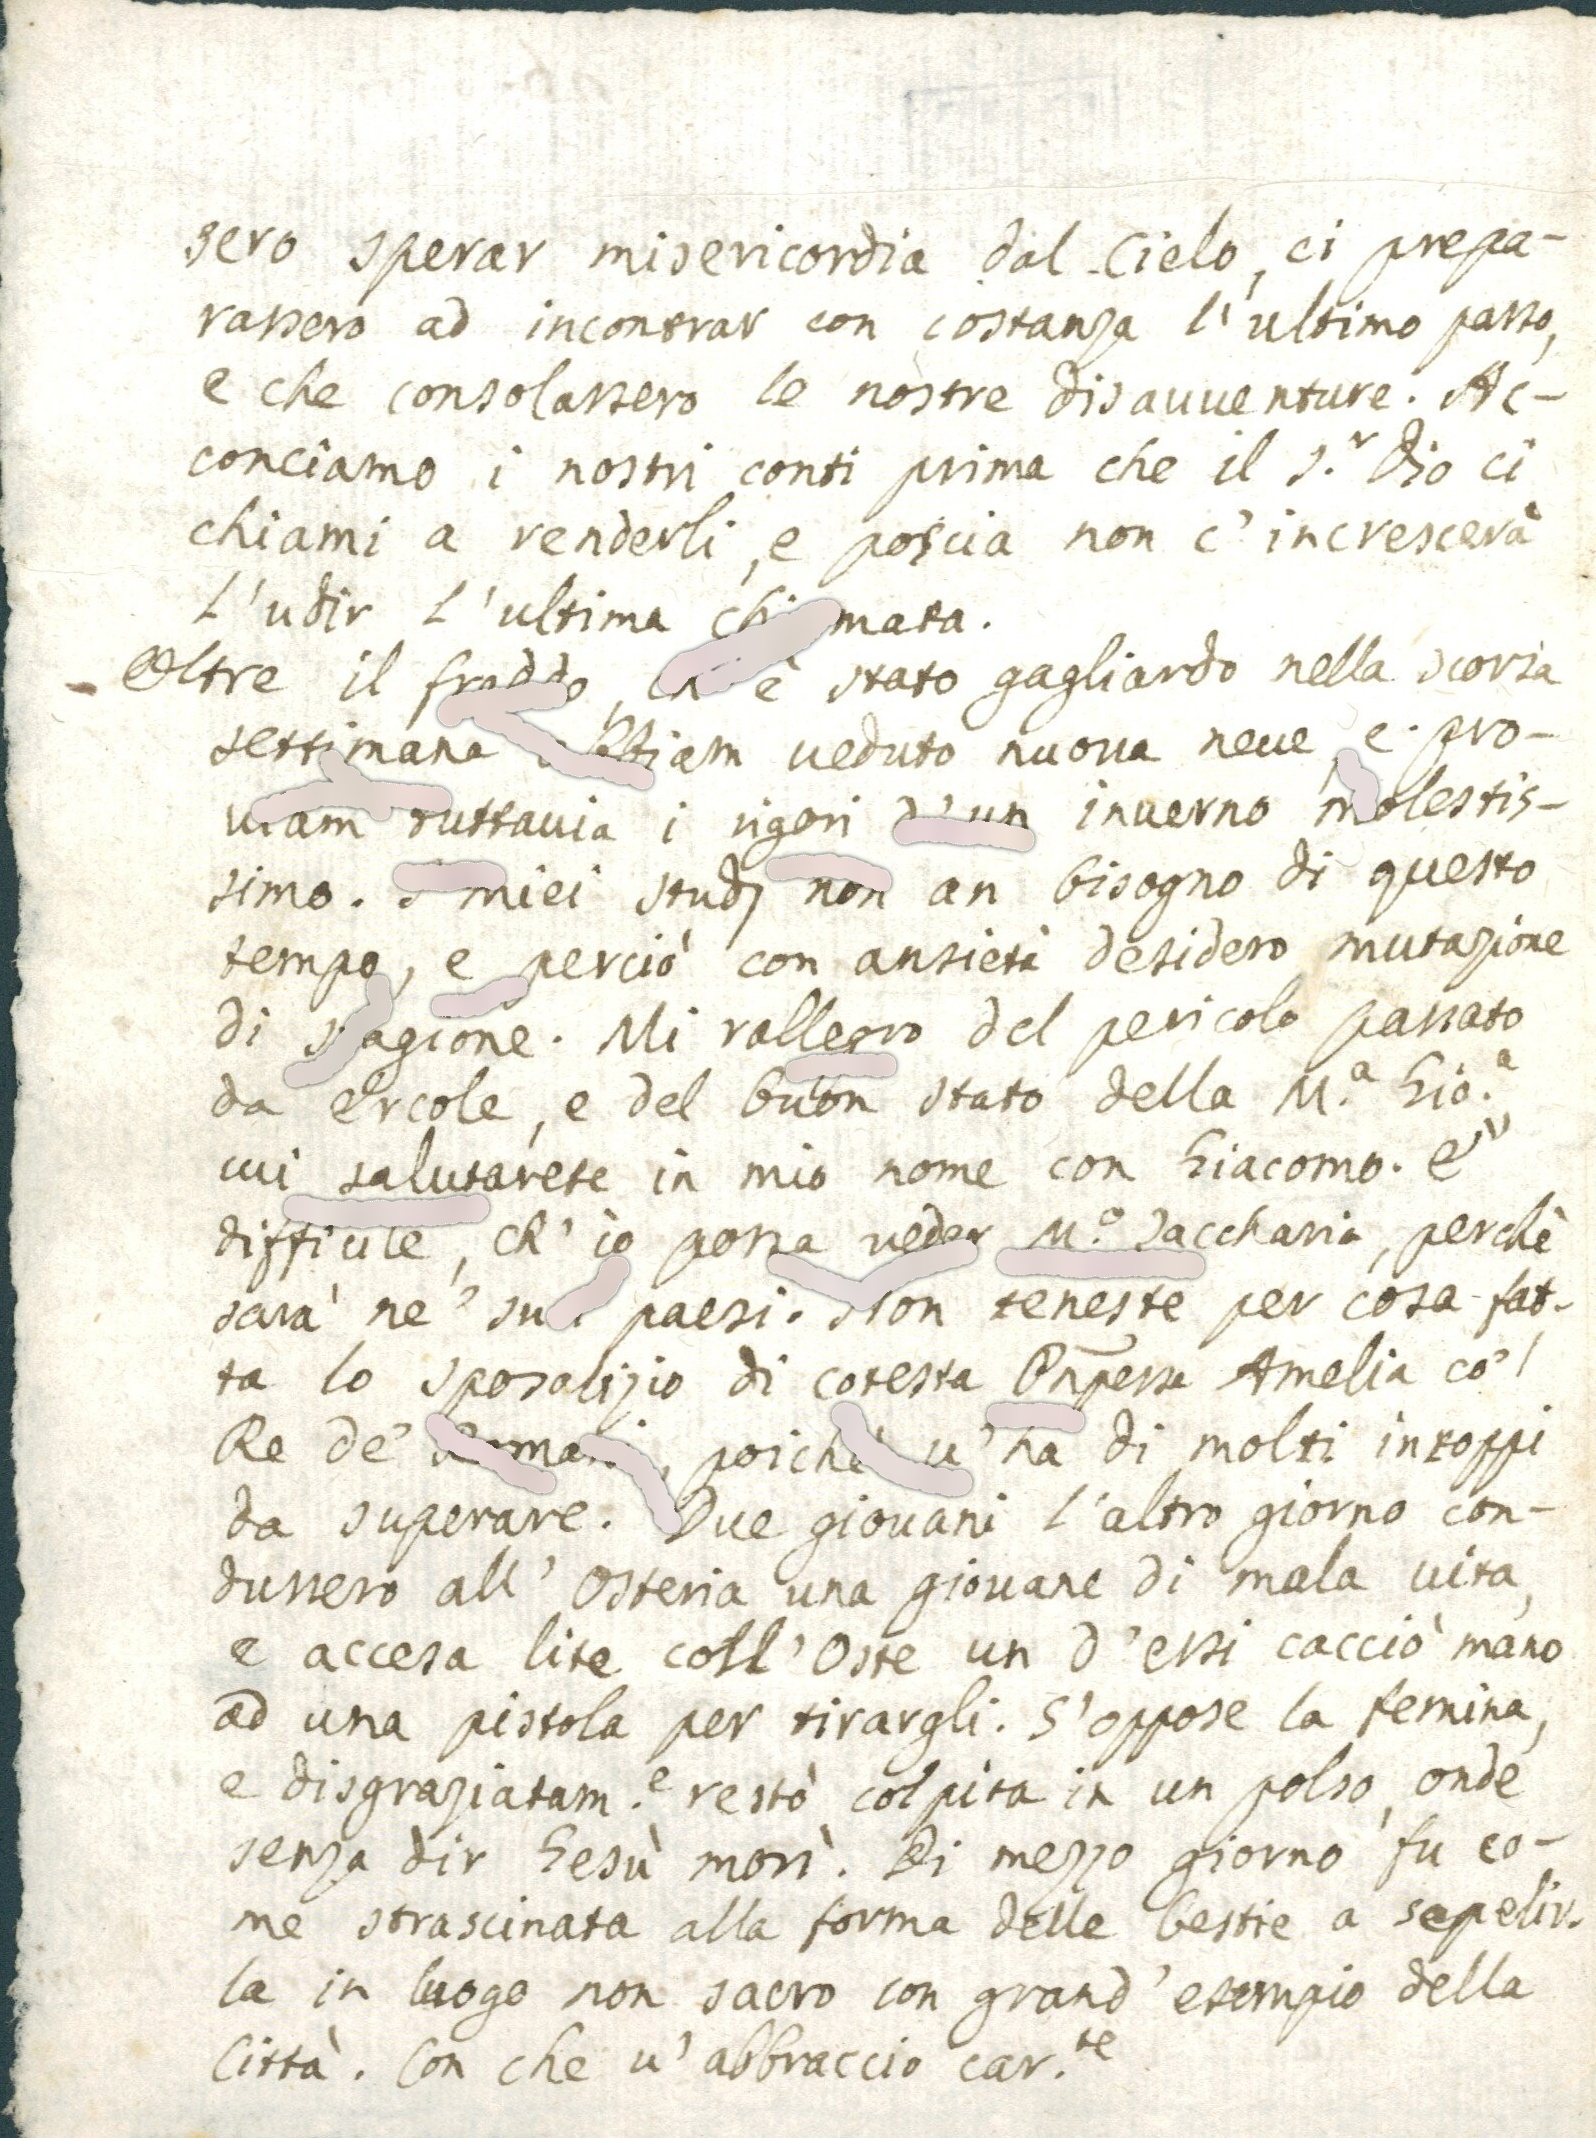 sero sperar misericordia dal Cielo, ci prepa-
rassero ad incontrar con costanza l'ultimo passo,
e che consolassero le nostre disavventure. Ac-
conciamo i nostri conti prima che il S.r Dio ci
chiami a renderli, e poscia non c'increscerà
l'udir l'ultima chiamata.
Oltre il freddo, ch'è stato gagliardo nella scorsa
settimana abbiam veduto nuova neve, e pro-
viam tuttavia i rigori d'un inverno molestis-
simo. I miei studj non an bisogno di questo
tempo, e perciò con ansietà desidero mutazione
di stagione. Mi rallegro del pericolo passato
da Ercole, e del buon stato della M.a Gio.a
cui salutarete in mio nome con Giacomo. E'
difficile, ch'io possa veder M.o Zaccharia, perchè
sarà ne' suoi paesi. Non teneste per cosa fat-
ta lo sposalizio di cotesta Pnpessa Amelia co'l
Re de' Romani, poichè v'ha di molti intoppi
da superare. Due giovani l'altro giorno con-
dussero all'Osteria una giovane di mala vita,
e accesa lite coll'Oste un d'essi cacciò mano
ad una pistola per tirargli. S'oppose la femina,
e disgraziatam.e restò colpita in un polso, onde
senza dir Gesù morì. Di mezzo giorno fu co-
me strascinata alla forma delle bestie a sepelir-
la in luogo non sacro con grand'esempio della
Città. Con che v'abbraccio car.te